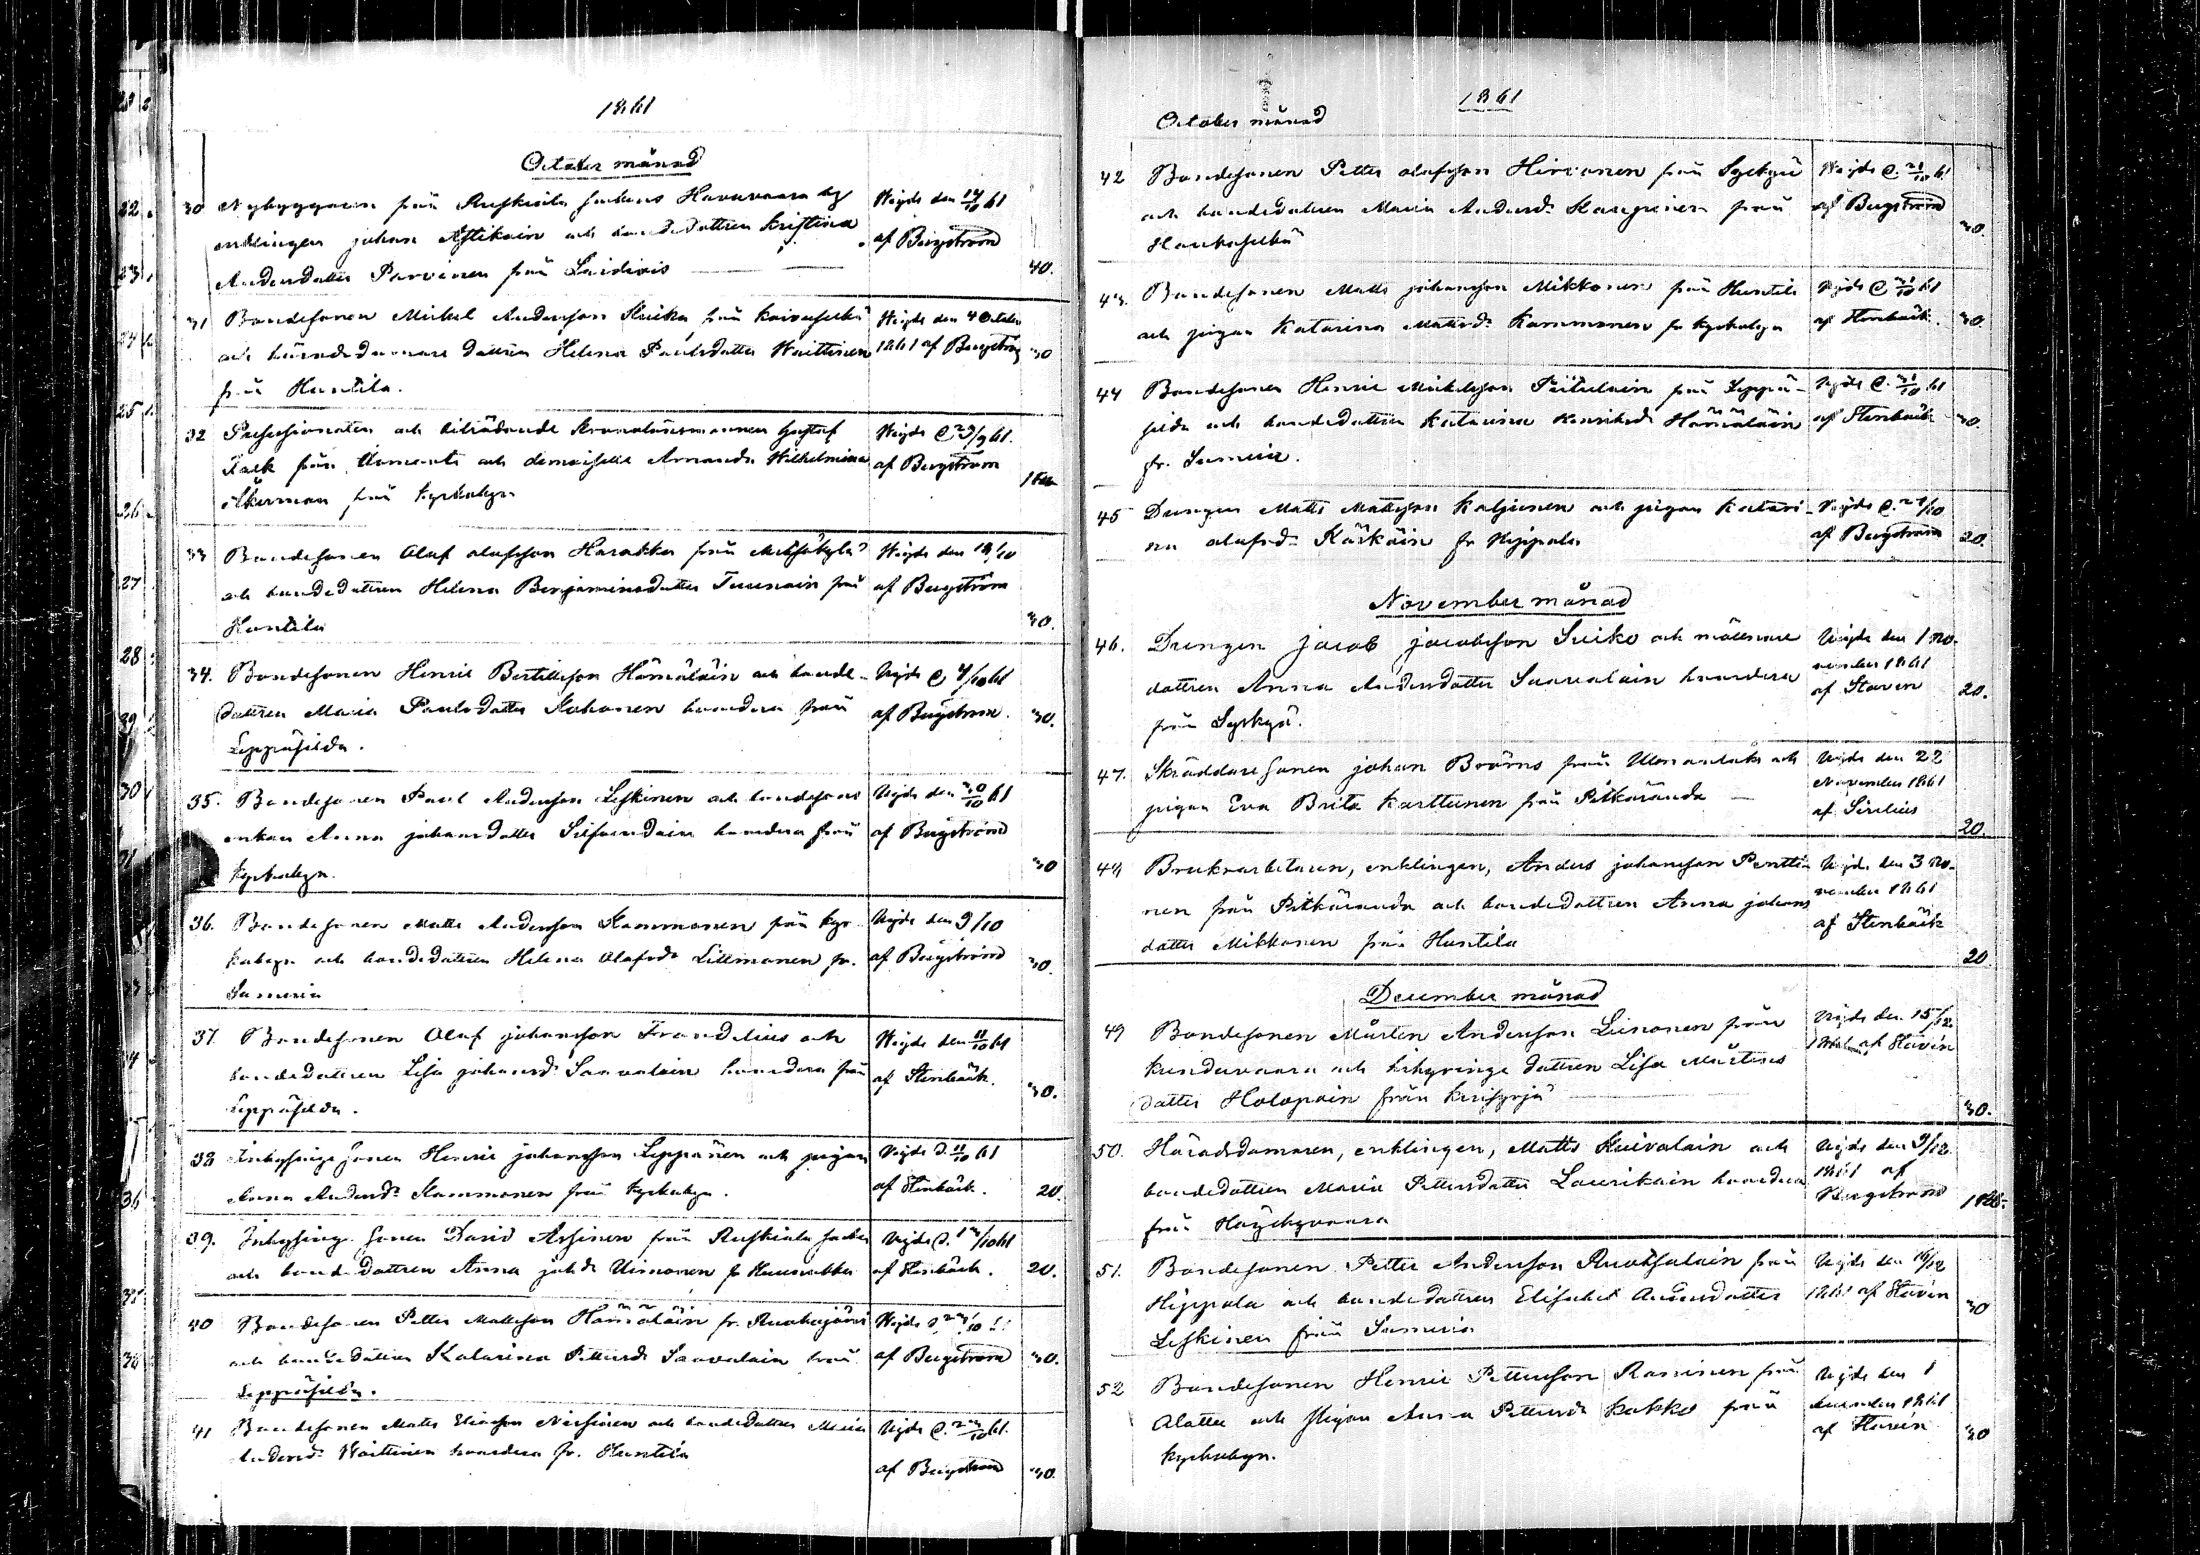 1861
October månad
30 Nybyggaren från Ruskiala sockens Havuvaara by
enklingen johan Astikain och bondedottren Kristina
Andersdotter Parvinen från Leidinis
Wigde den 14/10 61
af Bergström
40.
31 Bondesonen Mickel Andersson Kuika från Koivuselkä
och häradsdomare dottren Helena Paulsdotter Waittinen
från Huntila.
Wigde den 4 October
1861 af Bergström
30
32 Professionaten och biträdande Kronolänsmannen Gustaf
Falk från och demoiselle Amanda Wilhelmina
Åkerman från Kyrkobyn
Wigde d. 29/9 61.
af Bergström
33 Bondesonen Olaf olafsson Harakka från
och bondedottren Helena Benjaminsdotter Tuunain från
Huntila
Wigde den 18/10
af Bergström
30.
34. Bondesonen Henric Bertillsson Hämäläin och bonde-
dottren Maria Paulsdotter Kohonen hvardera från
Leppäsilda.
Wigde d 4/10 61
af Bergström.
30.
35. Bondesonen Paul Andersson Leskinen och bondesons
enkan Anna johansdotter hvardera från
Kyrkobyn.
Wigde den 20/10 61
af Bergström
30
36. Bondesonen Matts Andersson Kammonen från Kyr-
kobyn och bondedottren Helena Olafsdr Lillmanen fr.
Sumeria
Wigde den 9/10
af Bergström
30.
37. Bondesonen Olaf johansson Frandelius och
bondedottren Lisa johansdr Saavalain hvardera från
Leppäsilda.
Wigde den 11/10 61
af Stenbäck.
30.
38 Inhysinge sonen Henric johansson Leppänen och pigan
Anna Andersdr Kammonen från Kyrkobyn.
Wigde d. 11/10 61
af Stenbäck.
20.
39. Inhysinge sonen David Assinen från Ruskiala socken
och bondedottren Anna johdr Uimonen fr
Wigde d. 13/10 61
af Stenbäck.
20.
40 Bondesonen Petter Mattsson Hämäläin fr. Ruokojärvi
och bondedottren Katarina Pettersdr Saavalain från
Leppäsilda.
Wigde
af Bergström
30.
41 Bondesonen Matts Eliasson Nissinen och bondedottren Maria
Andersdr Waittinen hvardera fr. Huntila
Wigde d. 23/10 61.
af Bergström
30.
1861
October månad
42 Bondesonen Petter olafsson Hirvonen från Syskyä
och bondedottren Maria Andersdr Kaupinen från
Haukaselkä
Wigde d. 21/10 61
af Bergström
30.
43. Bondesonen Matts johansson Mikkonen från Huntila
och pigan Katarina Mattsdr Kammonen fr Kyrkobyn
Wigde d 31/10 61
af Stenbäck.
30.
44 Bondesonen Henric Mickelsson Piitulain från Leppä-
silda och bondedottren Katarina Henriksdr Hämäläin
fr. Sumeria.
Wigde d. 31/10 61
af Stenbäck
30.
45 Drengen Matts Mattsson Kaljunen och pigan Katari-
na olafsdr Kärkäin fr Hippola
Wigde d. 27/10
af Bergström
20.
November månad
46. Drengen jacob jacobsson Suiko och mölnare
dottren Anna Andersdotter Saavalain hvardera
från Syskyä.
Wigde den 1 no-
vember 1861
af Staven
20.
47. Skräddare sonen johan Broms från och
pigan Eva Brita Karttunen från Pitkäranda
Wigde den 22
November 1861
af Sirelius
20.
48 Bruksarbetaren, enklingen, Anders johansson Pentti-
nen från Pitkäranda och bondedottren Anna johans
dotter Mikkonen från Huntila
Wigde den 3 no-
vember 1861
af Stenbäck
20
December månad
49 Bondesonen Mårten Andersson Liinonen från
Kunduvaara och inhysinge dottren Lisa Mårtens
dotter Holopain från Kirisyrjä
Wigde den 15/12
1861 af Stavén
30.
50. Häradsdomaren, enklingen, Matts Kuivalain och
bondedottren Maria Pettersdotter Laurikain hvardera
från Höyskyvaara
Wigde den 9/12
1861 af
Bergström
51. Bondesonen Petter Andersson Ruotsalain från
Hippola och bondedottren Elisabet Andersdotter
Leskinen från Sumeria
Wigde den 16/12
1861 af Stavén
30
52 Bondesonen Henric Pettersson Raninen från
Alattu och pigan Anna Pettersdr Kokko från
Kyrkobyn.
Wigde den 1
december 1861
af Stavén
30